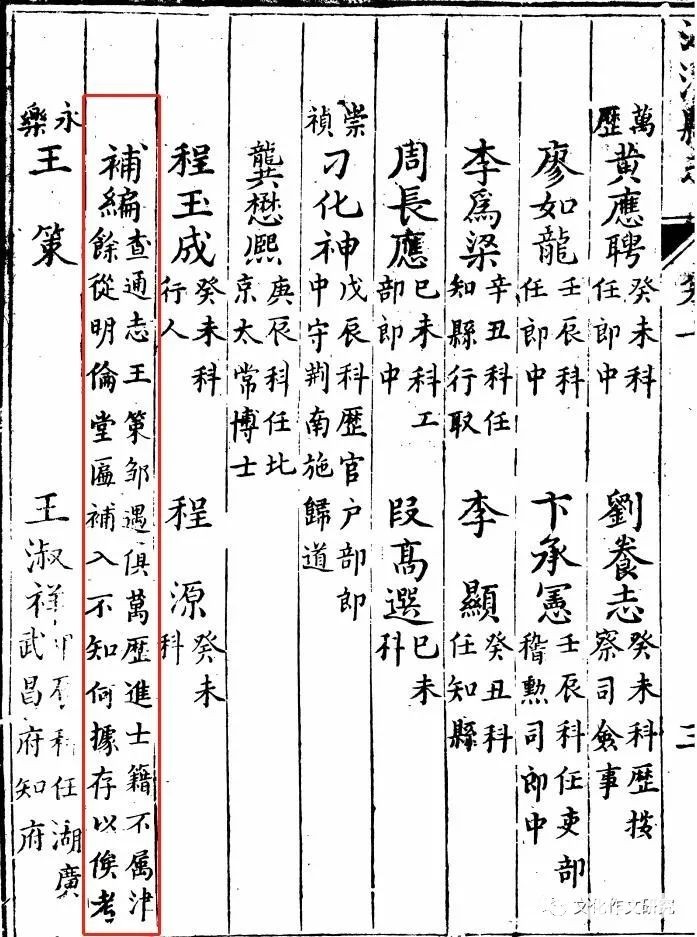 三
萬歷 黃應聘 癸未科任郎中 劉養志 癸未科歷按察司僉事
廖如龍 壬辰科任郎中 卞承憲 壬辰科任吏部稽勲司郎中
李爲梁 辛丑科任知縣行取 李顯 癸丑科任知縣
周長應 已未科工部郎中 段高選 已未科
崇禎 刁化神 戊辰科歷官户部郎中守荆南施歸道
龔懋熈 庚辰科任比京太常博士
程玉成 癸未科行人 程源 癸未科
補編 查通志王策邹遇俱萬歷進士籍不属津餘從明倫堂匾補入不知何據存以俟考
永樂 王策 王淑祥 甲科任湖廣武昌府知府
文化作文研究